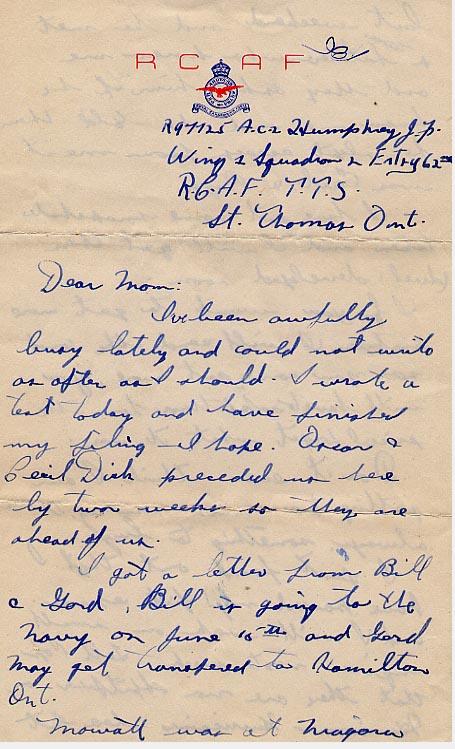 RCAF
R97125 A.C.2 Humphrey J.P.
Wing 2 Squadron 2 Entry 62
R.C.A.F. T.T.S.
St. Thomas Ont.
Dear Mom:
I've been awfully
busy lately and could not write
as often as I should. I wrote a
test today and have finished
my filing - I hope. Oscar &
Cecil Dick preceded us here
by two weeks so they are
ahead of us.
I got a letter from Bill
& Gord, Bill is going to the
Navy on June 15th and Gord
may get transfered to Hamilton
Ont.
Mowatt was at Niagara